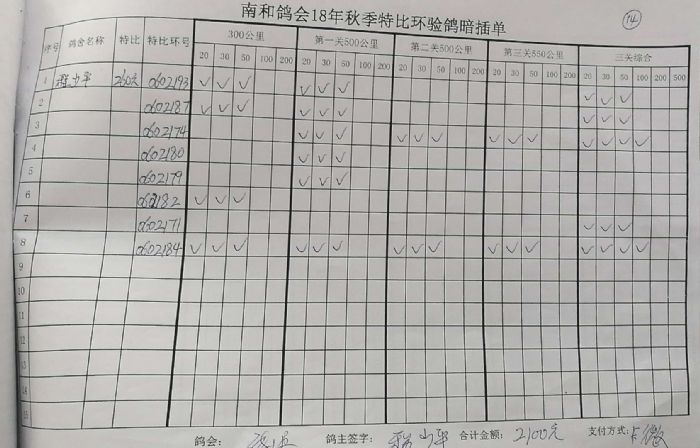 南和鸽会18年秋季特比环验鸽暗插单 14
序号 鸽舍名称 特比 特比环号 300公里 第一关500公里 第二关500公里 第三关550公里 三关综合
20 30 50 100 200 20 30 50 100 200 20 30 50 100 200 20 30 50 100 200 20 30 50 100 200 500
1 260元 0602193 ✓ ✓ ✓ ✓ ✓ ✓ ✓ ✓ ✓
2 0602187 ✓ ✓ ✓ ✓ ✓ ✓ ✓ ✓ ✓
3 0602174 ✓ ✓ ✓ ✓ ✓ ✓ ✓ ✓ ✓ ✓ ✓ ✓ ✓
4 0602180 ✓ ✓ ✓
5 0602179 ✓ ✓ ✓
6 ✓ ✓ ✓
7 0602171 ✓ ✓ ✓
8 0602184 ✓ ✓ ✓ ✓ ✓ ✓ ✓ ✓ ✓ ✓ ✓ ✓ ✓ ✓ ✓ ✓
9
10
11
12
13
14
15
鸽会： 鸽主签字： 合计金额： 2100元 支付方式：